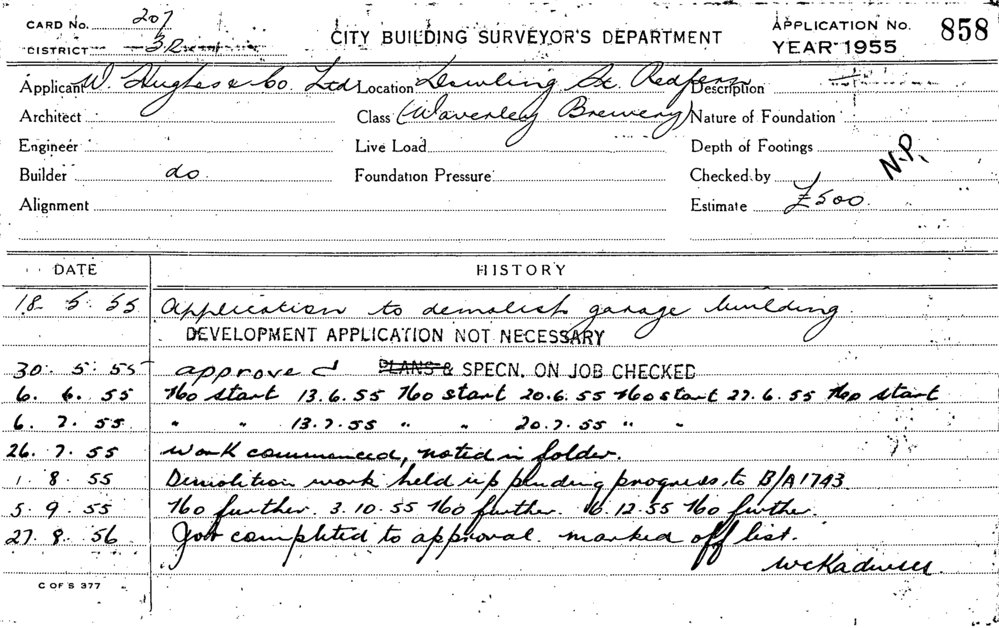 CARD NO. 207
DISTRICT
CITY BUILDING SURVEYOR'S DEPARTMENT
APPLICATION NO. 858
YEAR 1955
Applicant W. Hughes & Co. Ltd Location Dowling St. Redfern Description
Architect Class (Waverley Brewery) Nature of Foundation
Engineer Live Load Depth of Footings
Builder do Foundation Pressure Checked by N.P.
Alignment Estimate £500
DATE HISTORY
18 5. 55 Application to demolish garage building.
DEVELOPMENT APPLICATION NOT NECESSARY
30. 5. 55 approved PLANS & SPECN. ON JOB CHECKED
6. 6. 55 No start 13.6.55 No start 20.6.55 No start 27.6.55 No start
6. 7. 55 " " 13.7.55 " " 20.7.55 " "
26. 7. 55 work commenced, noted in folder.
1. 8. 55 Demolition work held up pending progress to B/A 1743
5. 9. 55 No further. 3.10.55 No further. 12.55 No further.
27. 8. 56 Job completed to approval. marked off list.
C OF S 377